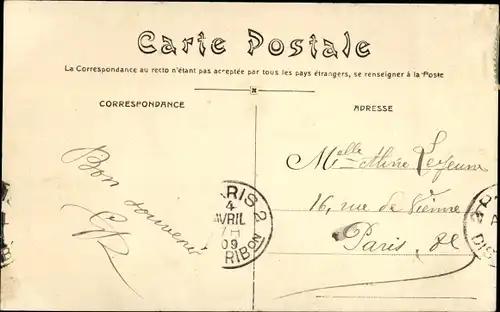 Carte Postale
La Correspondance au recto n'étant pas acceptée par tous les pays étrangers, se renseigner à la Poste
CORRESPONDANCE
ADRESSE
Bon souvenir
Melle Aline Lejeune
16, rue de Vienne
Paris
PARIS 2
4
AVRIL
7 H
09
DISTRIBON